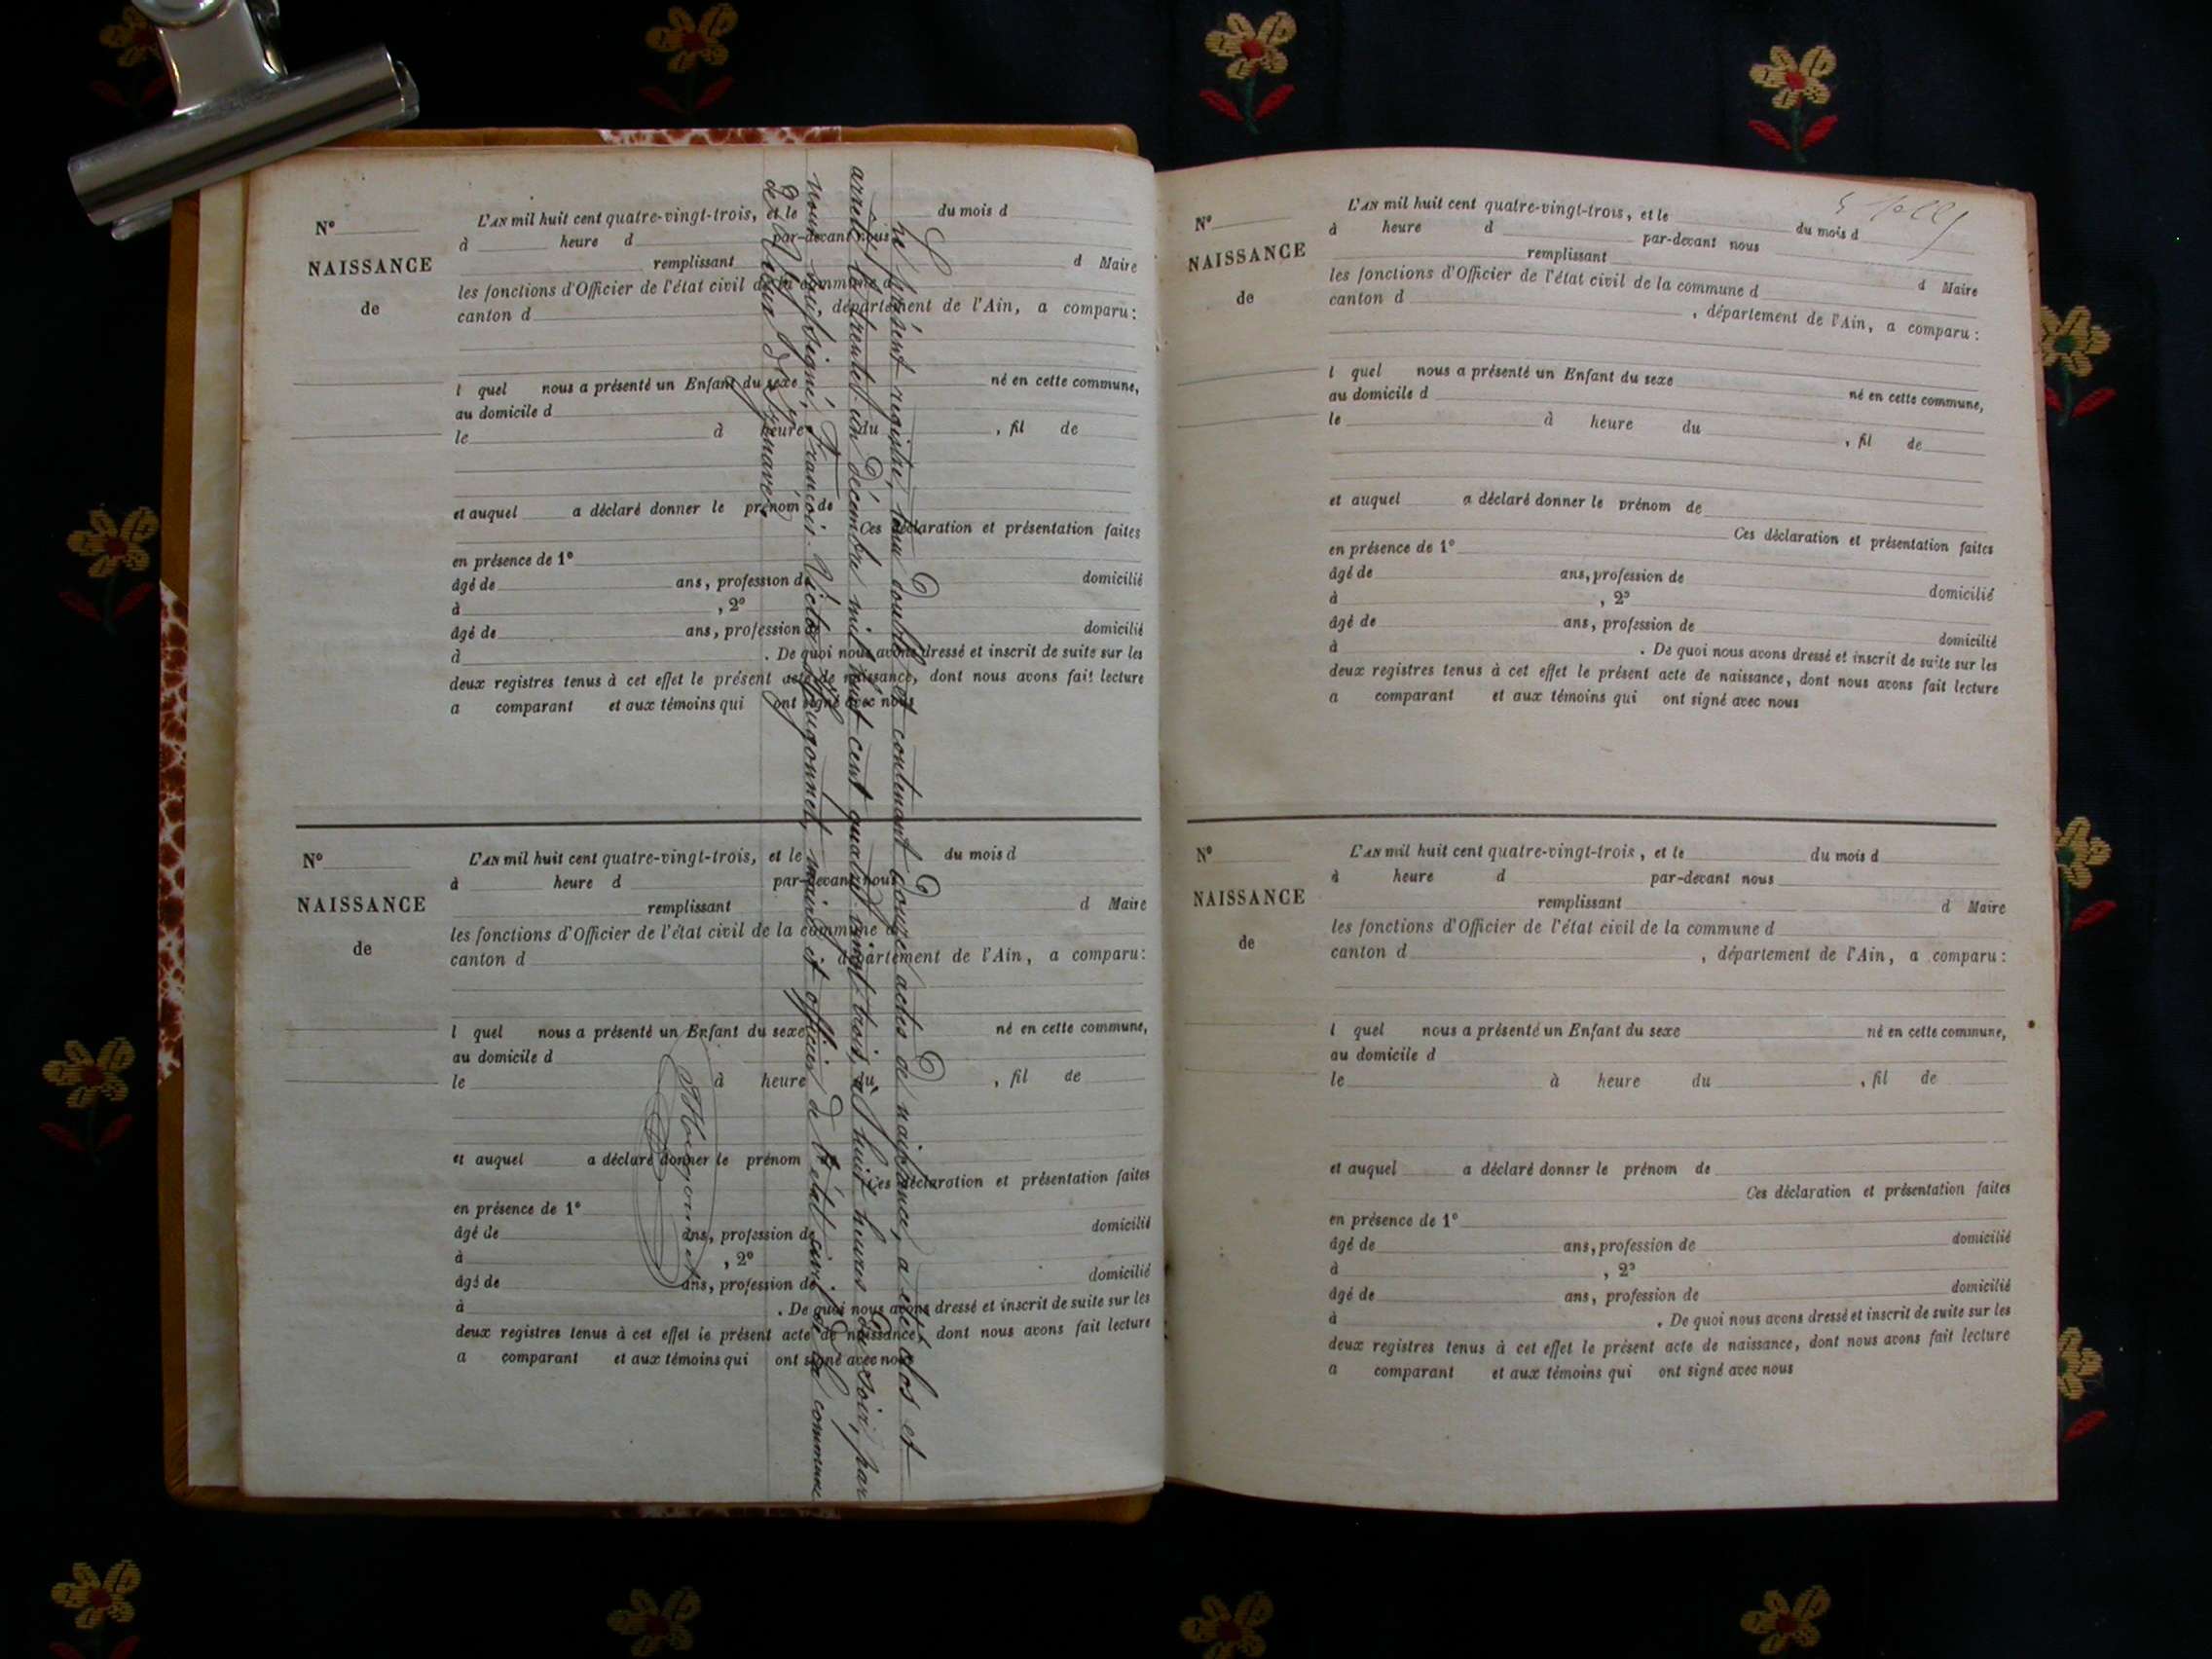 N°
NAISSANCE
de
L'AN mil huit cent quatre-vingt-trois, et le du mois d
à heure d par-devant nous
remplissant d Maire
les fonctions d'Officier de l'état civil de la commune d
canton d département de l'Ain, a comparu:
l quel nous a présenté un Enfant du sexe né en cette commune,
au domicile d
le à heure du , fil de
et auquel a déclaré donner le prénom de
Ces déclaration et présentation faites
en présence de 1°
âgé de ans, profession de domicilié
à , 2°
âgé de ans, profession domicilié
à . De quoi nous avons dressé et inscrit de suite sur les
deux registres tenus à cet effet le présent acte de naissance, dont nous avons fait lecture
a comparant et aux témoins qui ont signé avec nous
N°
NAISSANCE
de
L'AN mil huit cent quatre-vingt-trois, et le du mois d
à heure d par-devant nous
remplissant d Maire
les fonctions d'Officier de l'état civil de la commune d
canton d département de l'Ain, a comparu:
l quel nous a présenté un Enfant du sexe né en cette commune,
au domicile d
le à heure du , fil de
et auquel a déclaré donner le prénom
Ces déclaration et présentation faites
en présence de 1°
âgé de ans, profession de domicilié
à , 2°
âgé de ans, profession de domicilié
à . De quoi nous avons dressé et inscrit de suite sur les
deux registres tenus à cet effet le présent acte de naissance, dont nous avons fait lecture
a comparant et aux témoins qui ont signé avec nous
Le présent registre, tenu double et contenant douze actes de naissance, a été clos et
arrêté le trente et un décembre mil huit cent quatre-vingt-trois, à huit heures du soir, par
nous soussigné, François-Victor Hugonnet, maire et officier de l'état civil de la commune
de Vieu d'Izenave.
Hugonnet
N°
NAISSANCE
de
L'AN mil huit cent quatre-vingt-trois, et le du mois d
à heure d par-devant nous
remplissant d Maire
les fonctions d'Officier de l'état civil de la commune d
canton d , département de l'Ain, a comparu:
l quel nous a présenté un Enfant du sexe né en cette commune,
au domicile d
le à heure du , fil de
et auquel a déclaré donner le prénom de
Ces déclaration et présentation faites
en présence de 1°
âgé de ans, profession de domicilié
à , 2°
âgé de ans, profession de domicilié
à . De quoi nous avons dressé et inscrit de suite sur les
deux registres tenus à cet effet le présent acte de naissance, dont nous avons fait lecture
a comparant et aux témoins qui ont signé avec nous
N°
NAISSANCE
de
L'AN mil huit cent quatre-vingt-trois, et le du mois d
à heure d par-devant nous
remplissant d Maire
les fonctions d'Officier de l'état civil de la commune d
canton d , département de l'Ain, a comparu:
l quel nous a présenté un Enfant du sexe né en cette commune,
au domicile d
le à heure du , fil de
et auquel a déclaré donner le prénom de
Ces déclaration et présentation faites
en présence de 1°
âgé de ans, profession de domicilié
à , 2°
âgé de ans, profession de domicilié
à . De quoi nous avons dressé et inscrit de suite sur les
deux registres tenus à cet effet le présent acte de naissance, dont nous avons fait lecture
a comparant et aux témoins qui ont signé avec nous